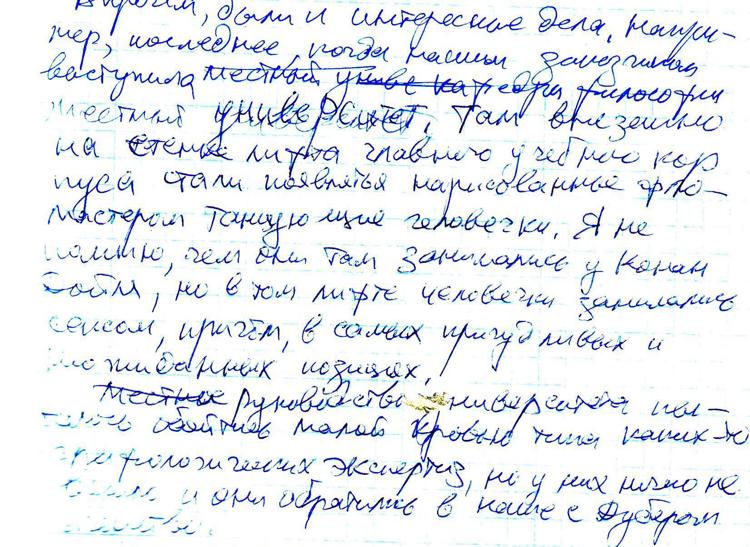 Впрочем, были и интересные дела, напри-
мер, последнее, когда нашим заказчиком
выступила местный универ кафедра философии
местный университет. Там внезапно
на стенке лифта главного учебного кор
пуса стали появляться нарисованные фло-
мастером танцующие человечки. Я не
помню, чем они там занимались у Конан
Дойля, но в том лифте человечки занимались
сексом, причём, в самых причудливых и
неожиданных позициях.
Местные Руководство университета пы-
талось обойтись малой кровью типа каких-то
графологических экспертиз, но у них ничего не
вышло и они обратились в наше с Дубером